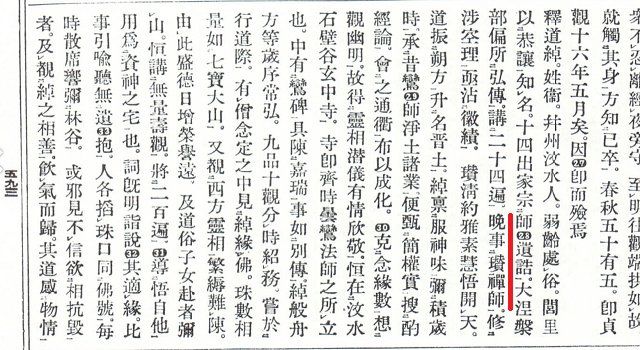 衆不忍離繞夜旁守。至明往觀端拱如故
就觸其身方知已卒。春秋五十有五。卽貞
觀十六年五月矣。因㉗卽而殮焉
釋道綽姓衞。幷州汶水人。弱齡處俗。閭里
以恭讓知名。十四出家宗師㉘遺誥。大涅槃
部偏所弘傳。講二十四遍。晚事瓚禪師。修
涉空理亟沾徽績。瓚淸約雅素慧悟開天。
道振朔方升名晋土。綽禀服神味彌積歲
時。承昔鸞㉙師淨土諸業便甄簡權實搜酌
經論。會之通衢布以成化。㉚克念緣數想
觀幽明。故得靈相潛儀有情欣敬。恒在汶水
石壁谷玄中寺。寺卽齊時曇鸞法師之所立
也。中有鸞碑具陳嘉瑞事如別傳綽般舟
方等歲序常弘。九品十觀分時紹務。嘗於
行道際。有僧念定之中見綽緣佛。珠數相
量如七寶大山。又覩西方靈相繁縟難陳。
由此盛德日增榮譽遠。及道俗子女赴者彌
山。恒講無量壽觀。將二百遍㉛導悟自他
用爲資神之宅也。詞旣明詣說㉜其適緣。比
事引喩聽無遺㉝抱。人各掐珠口同佛號。每
時散席響彌林谷。或邪見不信欲相抗毀
者。及覩綽之相善。飮氣而歸。其道感物情
五九三